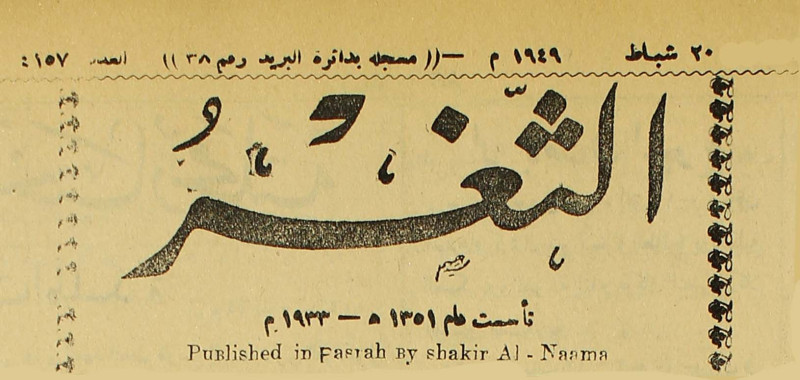 ٢٠ شباط ١٩٤٩ م — (( مسجله بدائرة البريد رقم ٣٨ )) العدد ١٥٧ :
الثَّغْرُ
تأسست عام ١٣٥١ ه — ١٩٣٣ م
Published in Basrah By shakir Al - Naama